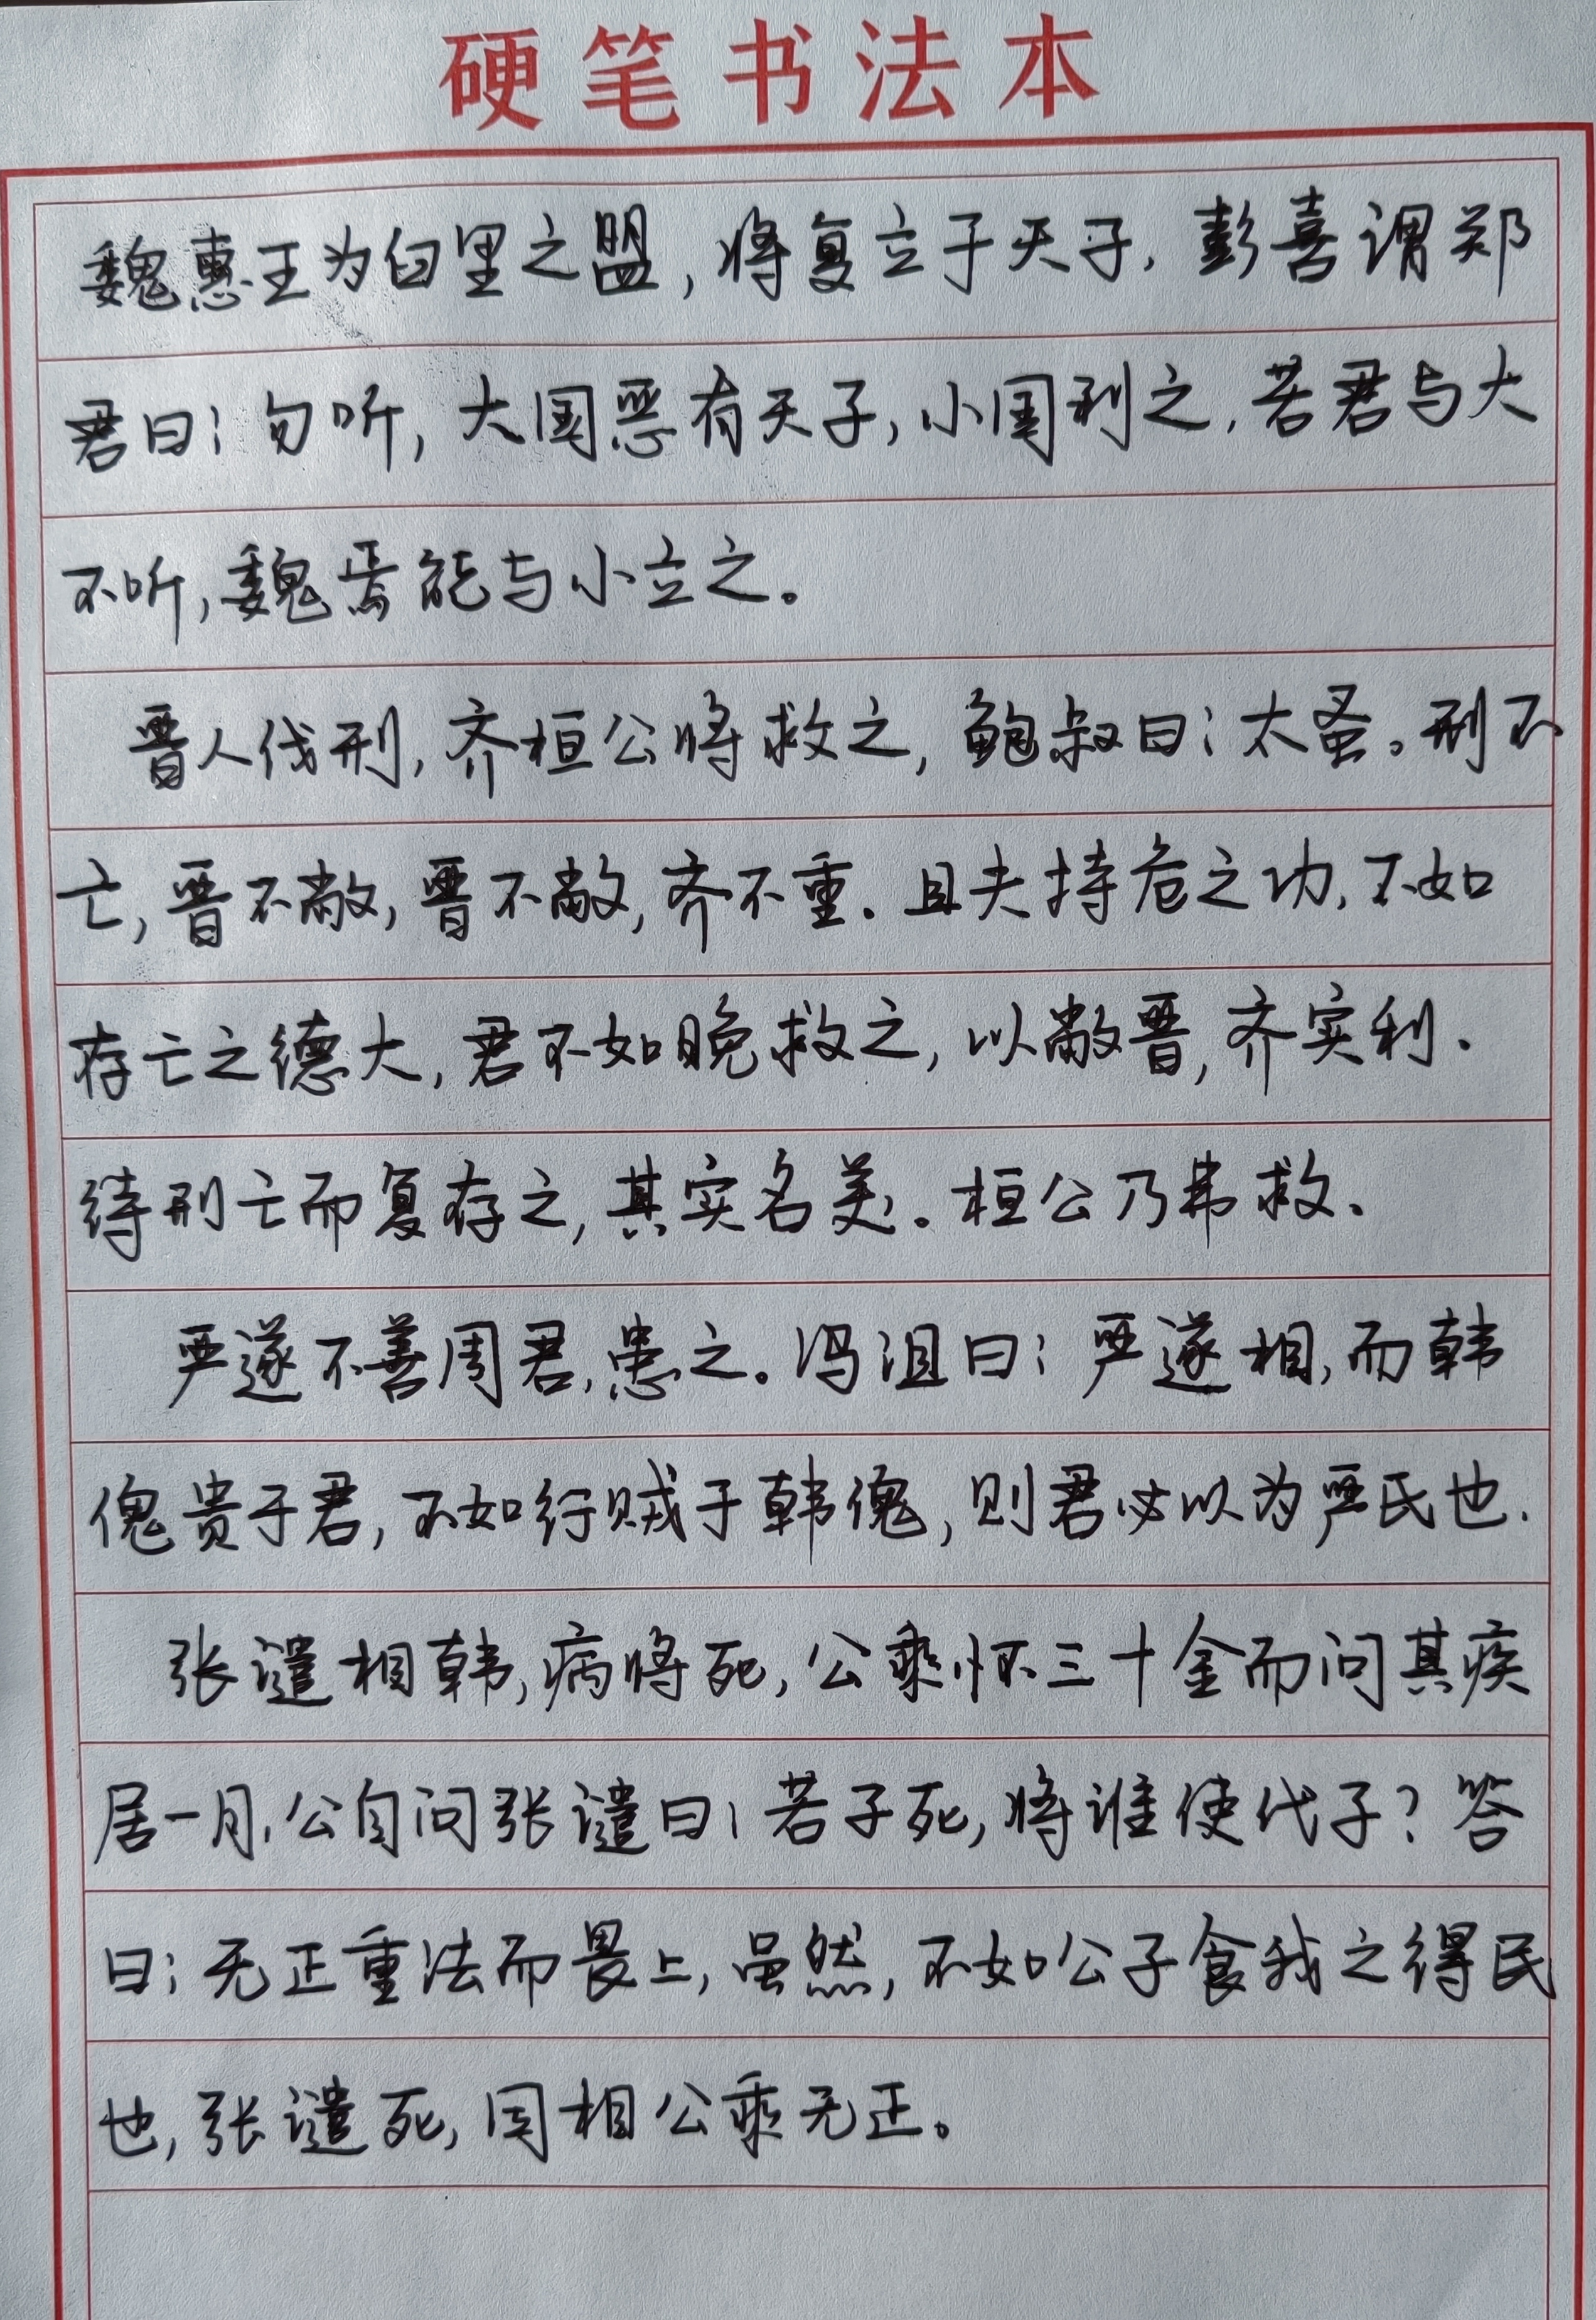 硬笔书法本
魏惠王为臼里之盟,将复立于天子,彭喜谓郑
君曰:勿听,大国恶有天子,小国利之,若君与大
不听,魏焉能与小立之。
晋人伐刑,齐桓公将救之,鲍叔曰:太蚤。刑不
亡,晋不敝,晋不敝,齐不重.且夫持危之功,不如
存亡之德大,君不如晚救之,以敝晋,齐实利.
待刑亡而复存之,其实名美。桓公乃弗救.
严遂不善周君,患之。冯沮曰:严遂相,而韩
傀贵于君,不如行贼于韩傀,则君必以为严氏也.
张谴相韩,病将死,公乘怀三十金而问其疾
居一月,公自问张谴曰:若子死,将谁使代子?答
曰:无正重法而畏上,虽然,不如公子食我之得民
也,张谴死,因相公乘无正。